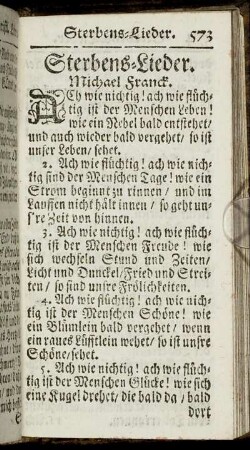 Sterbens-Lieder. 573
Sterbens-Lieder.
Michael Franck.
ACh wie nichtig! ach wie flüch-
tig ist der Menschen Leben!
wie ein Nebel bald entstehet/
und auch wieder bald vergehet/ so ist
unser Leben/ sehet.
2. Ach wie flüchtig! ach wie nich-
tig sind der Menschen Tage! wie ein
Strom beginnt zu rinnen/ und im
Lauffen nicht hält innen/ so geht un-
s're Zeit von hinnen.
3. Ach wie nichtig! ach wie flüch-
tig ist der Menschen Freude! wie
sich wechseln Stund und Zeiten/
Licht und Dunckel/ Fried und Strei-
ten/ so sind unsre Frölichkeiten.
4. Ach wie flüchtig! ach wie nich-
tig ist der Menschen Schöne! wie
ein Blümlein bald vergehet/ wenn
ein raues Lüfftlein wehet/ so ist unsre
Schöne/ sehet.
5. Ach wie nichtig! ach wie flüch-
tig ist der Menschen Glücke! wie sich
eine Kugel drehet/ die bald da/ bald
dort